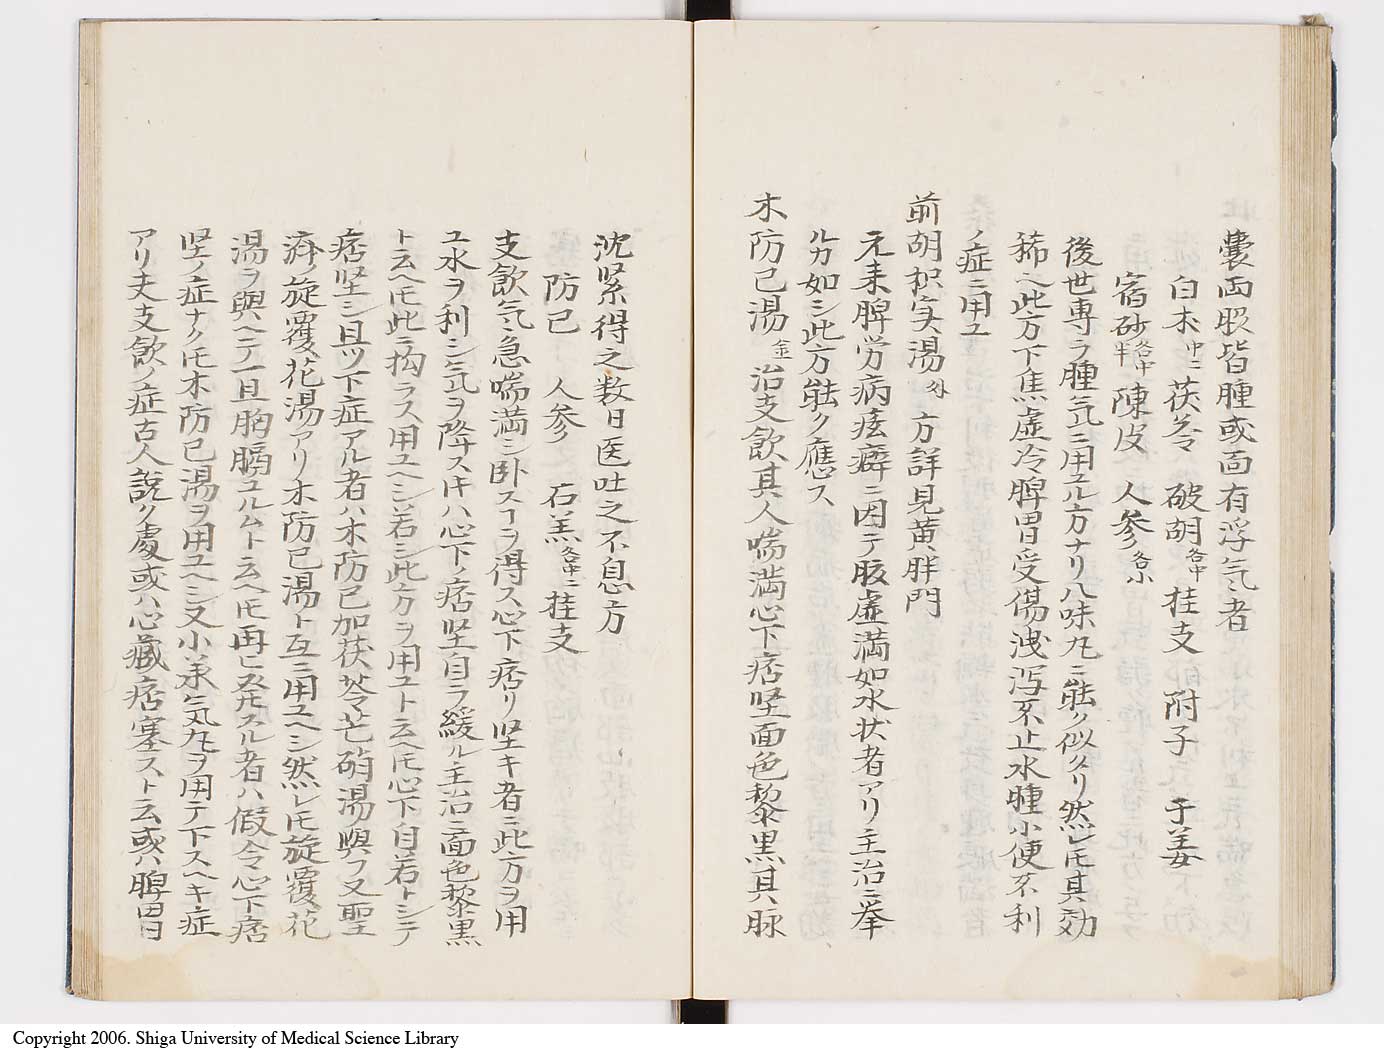 嚢両股皆腫或面有浮気者
白朮中二茯苓 破胡各中桂支 附子 子姜
宿砂各中半陳皮 人参各小
後世専ラ腫気ニ用ユル方ナリ八味丸ニ能ク似タリ然レ𪜈其効
稀ヘ此方下焦虚冷脾胃受傷洩泻不止水腫小便不利
ノ症ニ用ユ
前胡枳実湯 方詳見黄胖門
元来脾労病痃癖ニ因テ腹虚満如水状者アリ主治ニ挙
ルカ如シ此方能ク應ス
木防已湯金治支飲其人喘満心下痞坚面色黎黒其脉
沈緊得之数日医吐之不息方
防已 人参 石羔各中二桂支
支飲気急喘満シ卧スヿヲ得ス心下痞リ坚キ者ニ此方ヲ用
ユ水ヲ利シ気ヲ降スキハ心下ノ痞坚自ラ緩ル主治ニ面色黎黒
ト云へ𪜈此ニ拘ラス用ユヘシ若シ此方ヲ用ユト云へ𪜈心下自若トシテ
痞坚シ且ツ下症アル者ハ木防已加茯苓芒硝湯與フ又聖
済ノ旋覆花湯アリ木防已湯ト互ニ用ユヘシ然レ𪜈旋覆花
湯ヲ與ヘテ一旦胸膈ユルムト云へ𪜈再ヒ発スル者ハ假令心下痞
坚ノ症ナク𪜈木防已湯ヲ用ユヘシ又小承気丸ヲ用テ下スヘキ症
アリ夫支飲ノ症古人説ク處或ハ心臓痞塞スト云或ハ脾胃
Copyright 2006. Shiga University of Medical Science Library